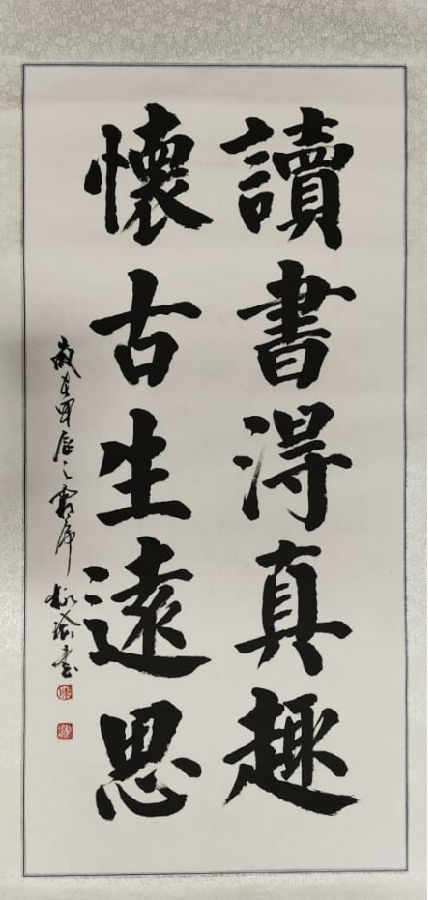 讀書得真趣
懷古生遠思
歲在甲辰之
書